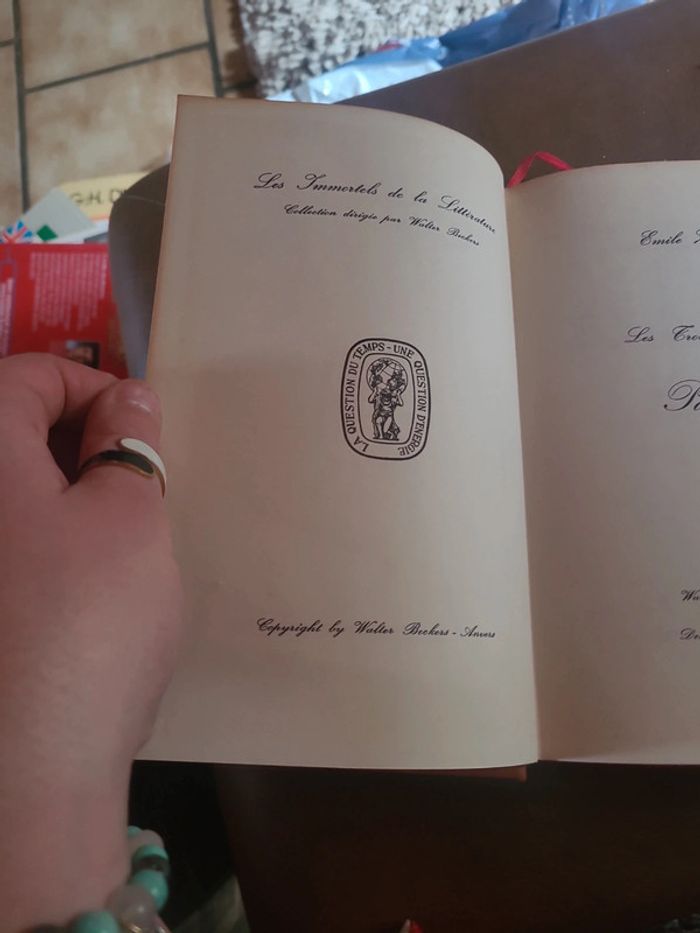 Les Immortels de la Littérature
Collection dirigée par Walter Beckers
LA QUESTION DU TEMPS - UNE QUESTION D'ENERGIE
Copyright by Walter Beckers - Anvers
Emile
Les
G.-H.